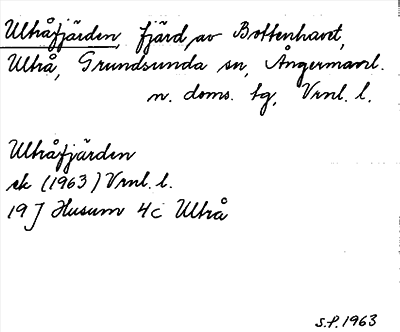 Ultråfjärden, fjärd av Bottenhavet,
Ultrå, Grundsunda sn, Ångermanl.
n. doms. tg, Vrnl. l.
Ultråfjärden
ek (1963) Vrnl. l.
19J Husum 4c Ultrå
S.P. 1963